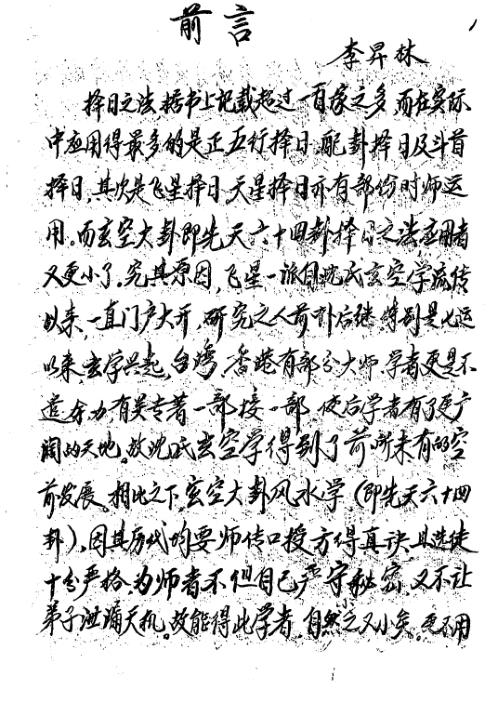 前言
李昇林
择日之法,据书上记载超过一百家之多,而在实际
中应用得最多的是正五行择日,配卦择日及斗首
择日,其次是飞星择日,天星择日亦有部份时师运
用。而玄空大卦即先天六十四卦择日之法应用者
又更小了。究其原因,飞星一派自沈氏玄空学流传
以来,一直门户大开,研究之人前补后继,特别是七运
以来,玄学兴起,台湾,香港有部分大师,学者更是不
遗余力,有关专著一部接一部,使后学者有了更广
阔的天地。故沈氏玄空学得到了前所未有的空
前发展。相比之下,玄空大卦风水学(即先天六十四
卦),因其历代均要师传口授方得真诀,且选徒
十分严格,为师者不但自己严守秘密,又不让
弟子泄漏天机。故能得此学者,自然少之又小矣。更不用